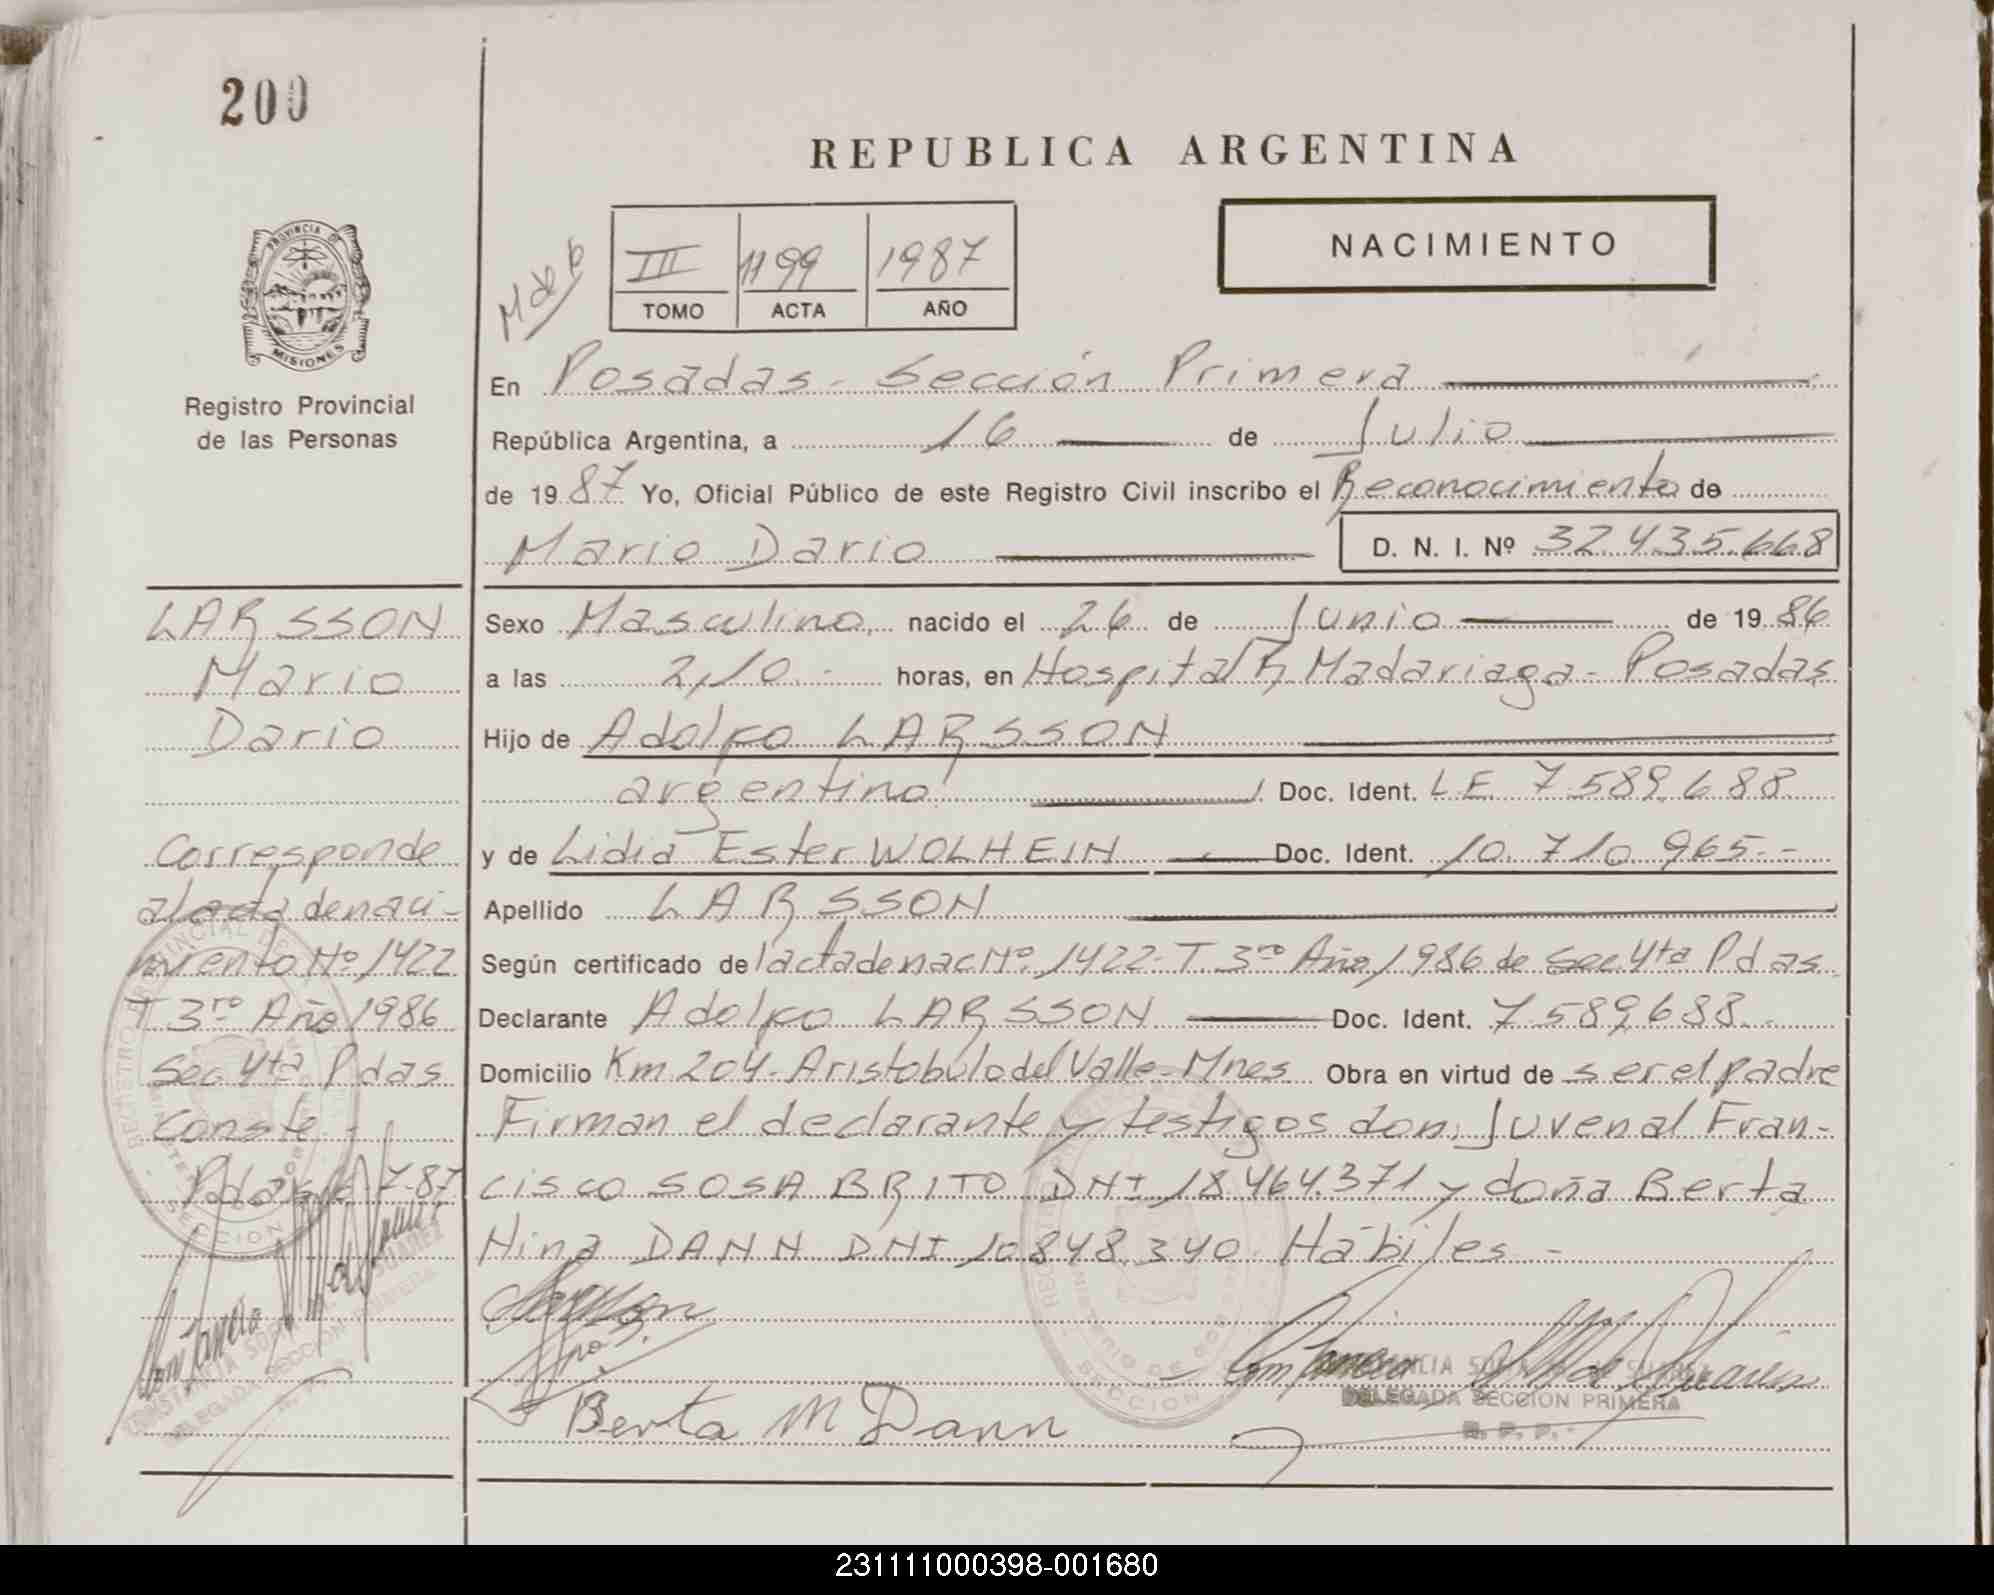 200
REPUBLICA ARGENTINA
NACIMIENTO
M de P
III 1199 1987
TOMO ACTA AÑO
PROVINCIA DE
MISIONES
Registro Provincial
de las Personas
En Posadas - Sección Primera
República Argentina, a 16 de Julio
de 1987 Yo, Oficial Público de este Registro Civil inscribo el Reconocimiento de
Mario Dario D. N. I. Nº 32.435.668
LARSSON
Mario
Dario
Corresponde
al acta de naci-
miento Nº 1422
T 3ro Año 1986
Sec 4ta Pdas
Conste -
Pdas 16-7-87
Sexo Masculino, nacido el 26 de Junio de 1986
a las 2,10.- horas, en Hospital R. Madariaga - Posadas
Hijo de Adolfo LARSSON
argentino Doc. Ident. LE 7.589.688
y de Lidia Ester WOLHEIN Doc. Ident. 10.710.965.--
Apellido LARSSON
Según certificado del acta de nac Nº 1422- T. 3ro Año 1986 de Sec. 4ta Pdas
Declarante Adolfo LARSSON Doc. Ident. 7.589.688.-
Domicilio Km 204- Aristobulo del Valle - Mnes Obra en virtud de ser el padre
Firman el declarante y testigos don Juvenal Fran-
cisco SOSA BRITO DNI 18.464.371 y doña Berta
Nina DANN DNI 10.848.340 Hábiles -
Berta M Dann
DELEGADA SECCION PRIMERA
R. P. P. -
231111000398-001680